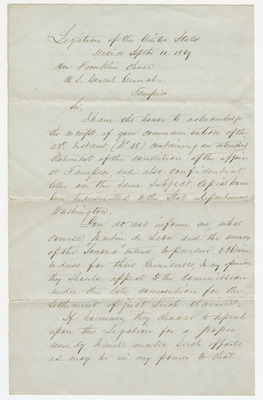 Legation of the United States
Mexico Sept. 11. 1869
Hon Franklin Chase
U. S. Consul General.
Tampico
Sir,
I have the honor to acknowledge
the receipt of your communication of the
28th instant (No 35) containing an interesting
statement of the condition of the affairs
at Tampico and also confidential
letter on the same subject, copies have
been transmitted to the State Department
Washington.
You do not inform me what
course Martin de Leon and the owners
of the intend to pursue to obtain
redress for their Grievances, in my opinion
they should appeal to the Commission
under the late convention for the
settlement of just such claims.
If however they choose to depend
upon this Legation for a proper
remedy I will make such efforts
as may be in my power to that